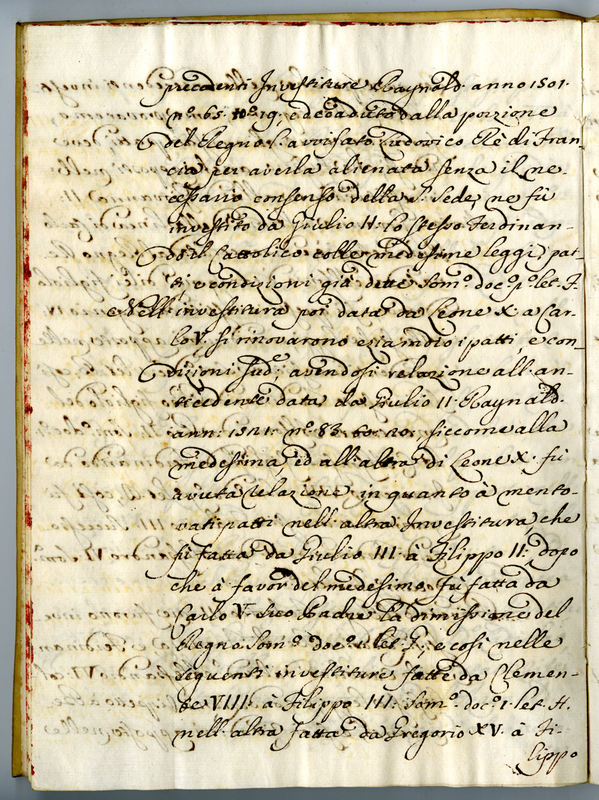 precedenti Investiture Raynald. anno 1501.
nº. 65. to: 19., e decaduto dalla porzione
del Regno S. avvisato Ludovico Rè di Fran-
cia per averla alienata senza il ne-
cessario consenso della S. Sede, ne fù
investito da Giulio II. lo stesso Ferdinan-
do il Cattolico colle medesime leggi, pat-
ti e condizioni già dette Somº. docº. 1º. let. F.
Nell'investitura poi data da Leone X. a Car-
lo V. si rinovarono eziandio i patti, e con-
dizioni sude., avendosi relazione all'an-
tecedente data da Giulio II. Raynald.
ann: 1521. nº. 83. to: 20., siccome alla
medesima, ed all'altra di Leone X. fù
avuta relazione in quanto à mento-
vati patti nell'altra Investitura che
fù fatta da Giulio III. à Filippo II. dopo
che à favor del medesimo fù fatta da
Carlo V. suo Padre la dimissione del
Regno Somº. docº. 1. let. G., e così nelle
seguenti investiture fatte da Clemen-
te VIII. à Filippo III. Somº. docº. 1. let. H.
nell'altra fatta da Gregorio XV. à Fi-
lippo